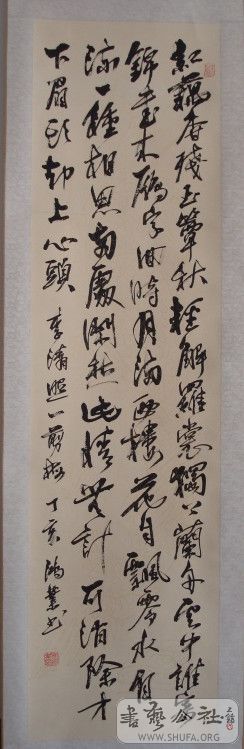 紅藕香殘玉簟秋輕解羅裳獨上蘭舟雲中誰寄
錦書來雁字回時月滿西樓花自飄零水自
流一種相思兩處閑愁此情無計可消除才
下眉頭却上心頭 李清照一剪梅 丁亥 鴻業書
書藝公社
WWW.SHUFA.ORG